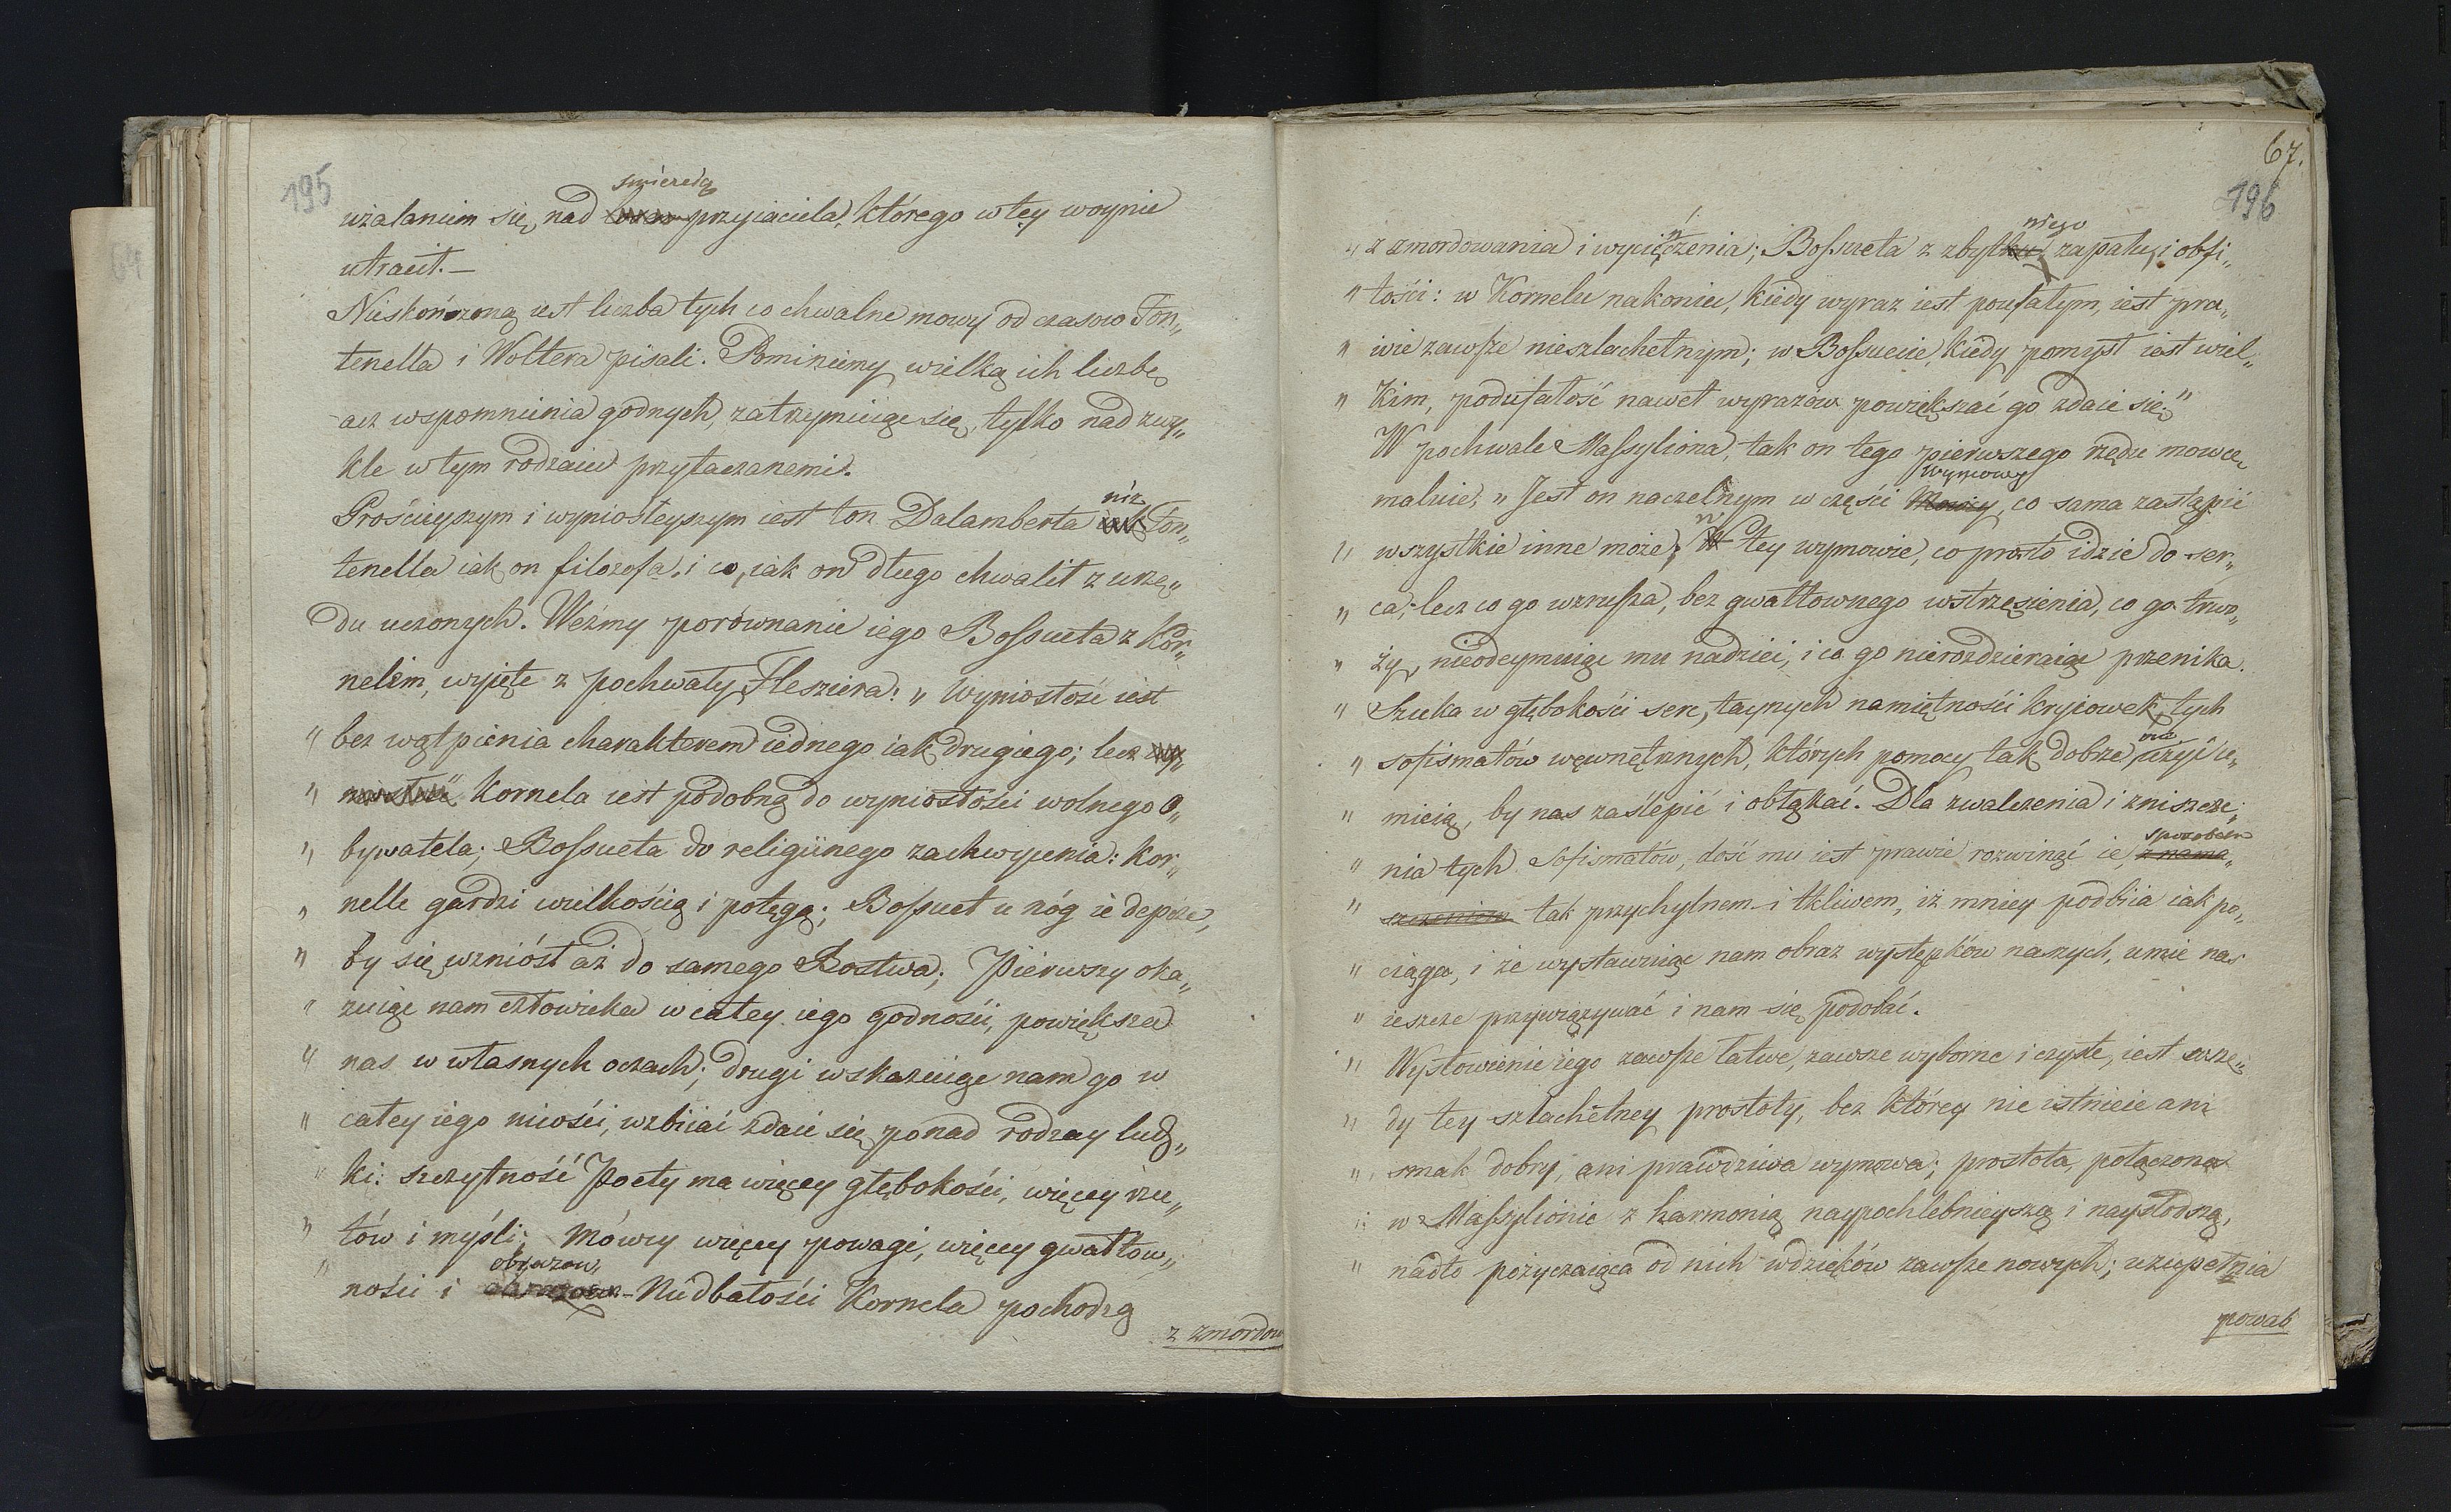 195
smiercią
użalaniem się nad przyiaciela, którego w tey woynie
utracił.—
Nieskończoną iest liczba tych co chwalne mowy od czasow Fon„
tenella i Woltera pisali. Pominiemy wielką ich liczbę
acz wspomnienia godnych, zatrzymuiąc się tylko nad zwy„
kle w tym rodzaiu przytaczanemi.
niż
Prościeyszym i wyniośleyszym iest ton Dalamberta iak Fon„
tenella iak on filozofa, i co iak on długo chwalił z urzę„
du uczonych. Weźmy porównanie iego Bossueta z Kor„
nelem, wyięte z pochwały Flesziera: „ Wyniosłość iest
„ bez wątpienia charakterem iednego iak drugiego; lecz wy„
„ niosłość Kornela iest podobną do wyniosłości wolnego o„
„ bywatela; Bossueta do religiinego zachwycenia: Kor„
„ nelle gardzi wielkością i potęgą; Bossuet u nóg ie depcze,
„ by się wzniósł aż do samego Bostwa; Pierwszy oka„
„ zuiąc nam człowieka w całey iego godności, powiększa
„ nas w własnych oczach; drugi wskazuiąc nam go w
„ całey iego nicości, wzbiiać zdaie się ponad rodzay ludz„
„ ki: szczytność Poety ma więcey głębokości, więcey rzu„
„ tów i myśli; Mówcy więcey powagi, więcey gwałtow„
obrazow
„ ności i obrazow. Niedbałości Kornela pochodzą
z zmordow
67.
196
ń niego
„ z zmordowania i wycieńczenia; Bossueta z zbytku zapału i obfi„
„ tości: w Kornelu nakoniec, kiedy wyraz iest poufałym, iest pra„
„ wie zawsze nieszlachetnym; w Bossuecie, kiedy pomysł iest wiel„
„ kim, podufałość nawet wyrazow powiększać go zdaie się."
W pochwale Massyliona, tak on tego pierwszego rzędu mowcę
wymowy
maluie: „ Jest on naczelnym w części Mowy, co sama zastąpić
w
„ wszystkie inne może; W tey wymowie, co prosto idzie do ser„
„ ca; lecz co go wzrusza, bez gwałtownego wstrzęsienia, co go trwo„
„ ży, nieodeymuiąc mu nadziei, i co go nierozdzieraiąc przenika.
„ Szuka w głębokości serc, taynych namiętności kryiowek, tych
„ sofismatów wewnętrznych, których pomocy tak dobrze użyć u„
„ mieią, by nas zaślepić i obłąkać. Dla zwalczenia i zniszcze„
sposobem
„ nia tych Sofismatów, dość mu iest prawie rozwinąć ie, z nama„
„ szczeniem tak przychylnem i tkliwem, iż mniey podbiia iak po„
„ ciąga, i że wystawuiąc nam obraz występków naszych, umie nas
„ ieszcze przywiązywać i nam się podobać.
„ Wysłowienie iego zawsze łatwe, zawsze wyborne i czyste, iest wszę„
„ dy tey szlachetney prostoty, bez którey nie istnieie ani
„ smak dobry, ani prawdziwa wymowa; prostota, połączona
„ w Massylionie z harmonią naypochlebnieyszą i naysłodszą,
„ nadto pożyczaiąca od nich wdzięków zawsze nowych; uzupełnia
powab